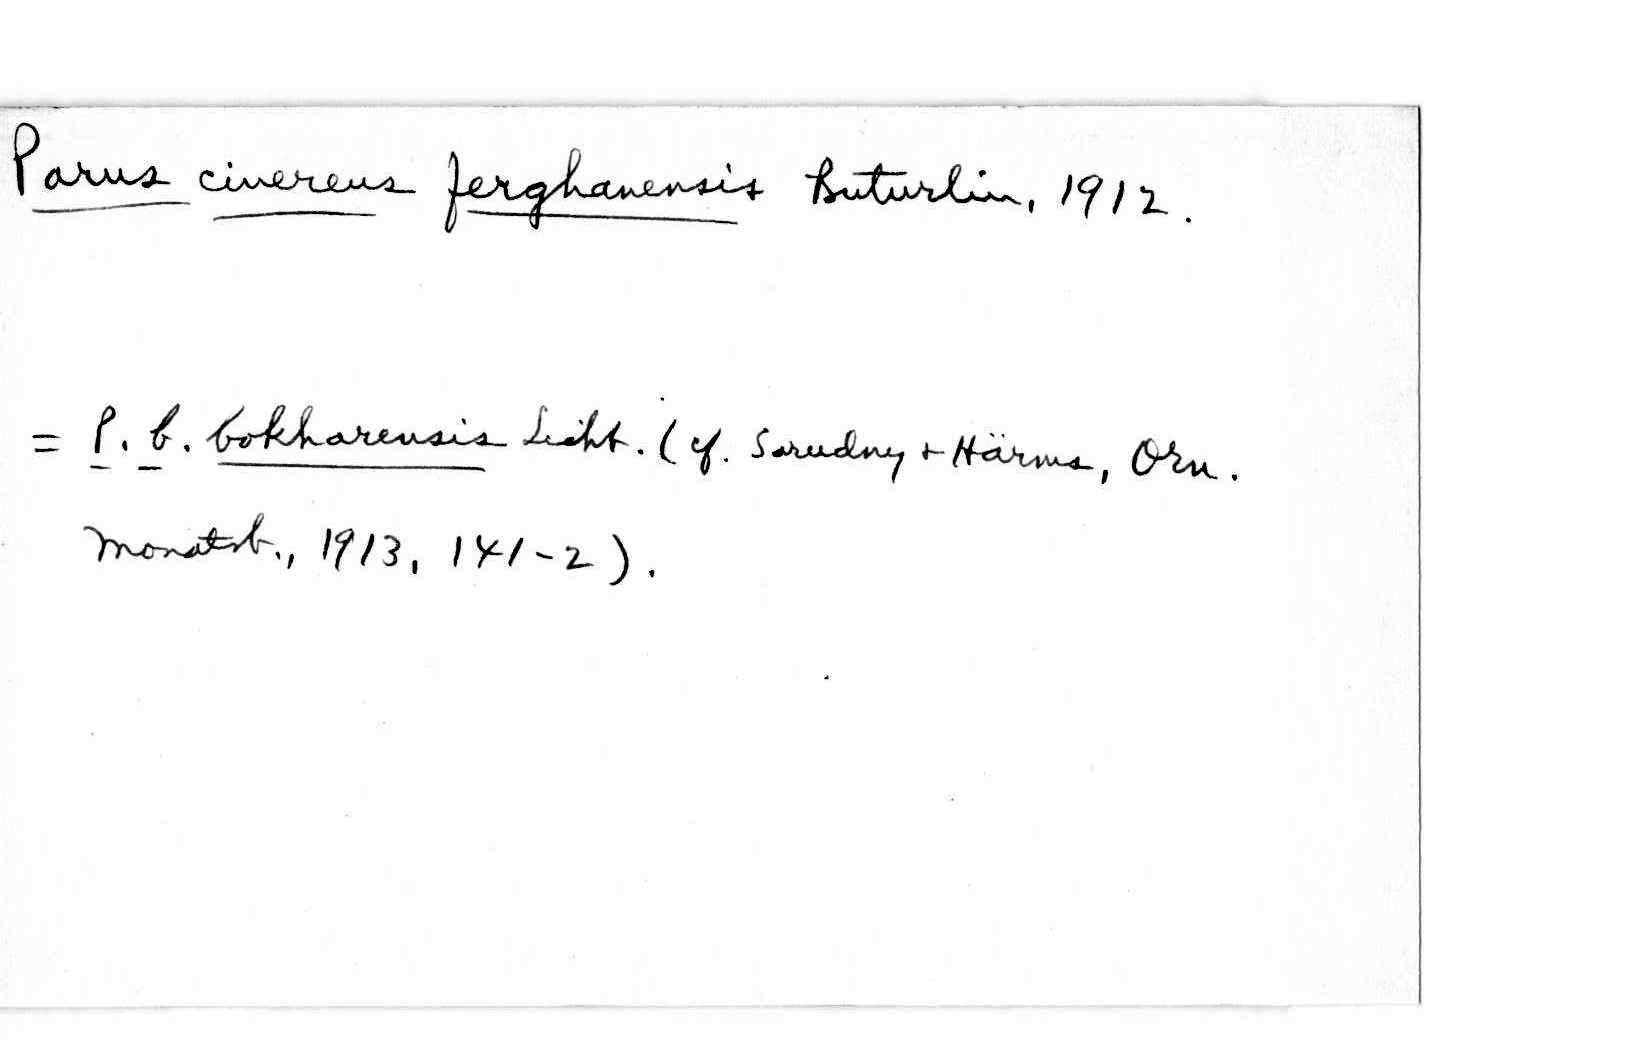 Parus cinereus ferghanensis Buturlin, 1912.
= P. b. bokharensis Licht. (cf. Sarudny + Härms, Orn.
Monatsb., 1913, 141-2).